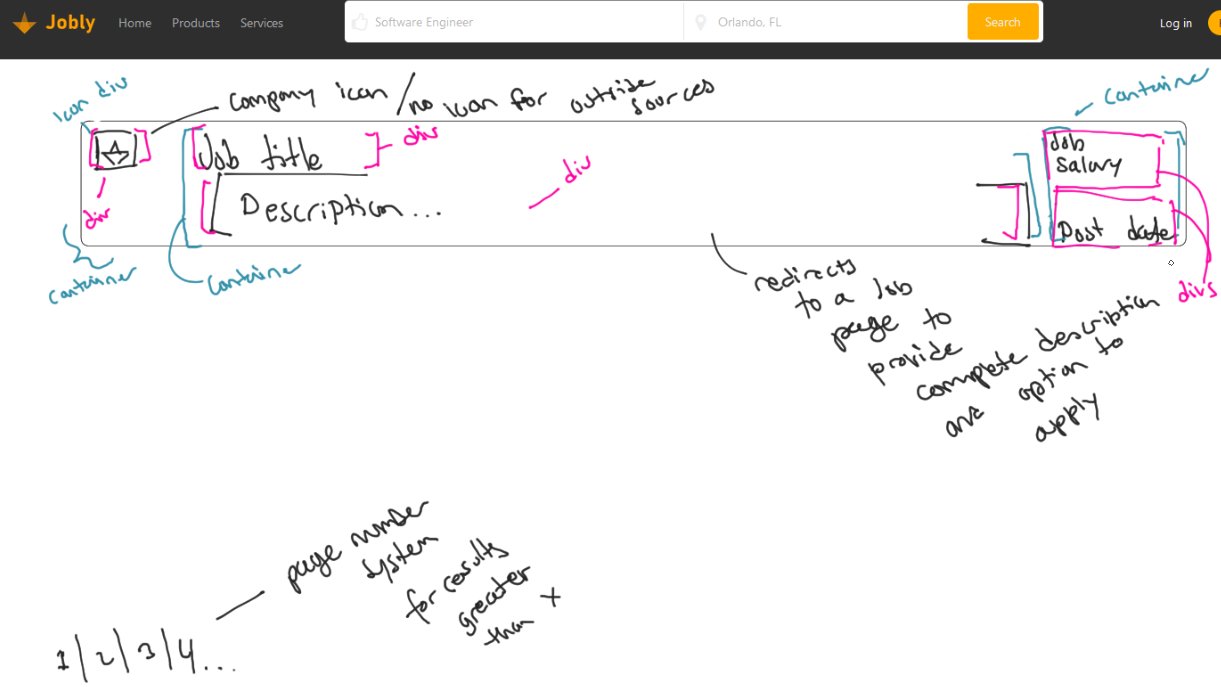 Jobly
Home Products Services
Software Engineer
Orlando, FL
Search
Log in
Icon div
company icon / no icon for outside
sources
container
Job title
div
Job
salary
div
Description...
div
Post date
container
container
divs
redirects
to a Job
page to
provide
complete description
and option to
apply
page number
system
for results
greater
than x
1 | 2 | 3 | 4 ...